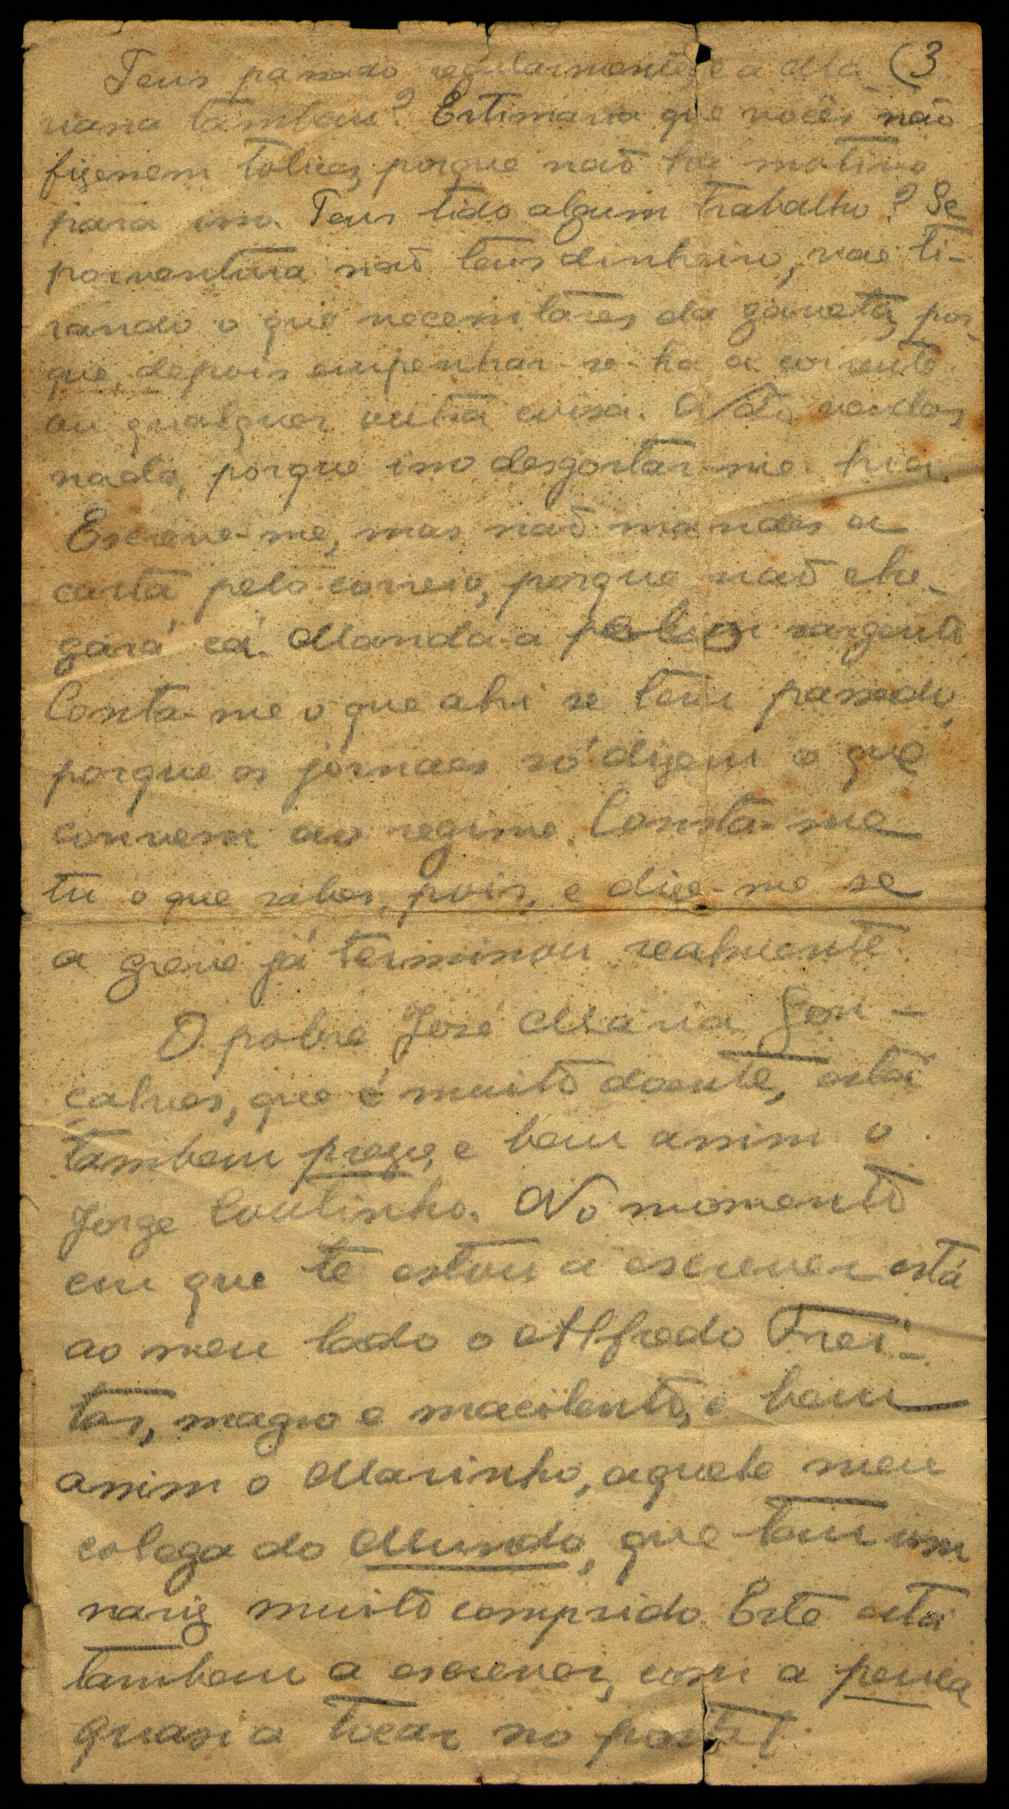 (3
Tens passado regularmente, e a Ma
riana tambem? Estimaria que vocês não
fizessem tolices, porque não ha motivo
para isso. Tens tido algum trabalho? Se
porventura não tens dinheiro, vae ti-
rando o que necessitares da gaveta, por-
que, depois empenhar-se-ha a corrente
ou qualquer outra coisa. Não vendas
nada, porque isso desgostar-me-hia.
Escreve-me, mas não mandes a
carta pelo correio, porque não che-
gará cá. Manda-a pelo sargento
Conta-me o que ahi se tem passado,
porque os jornaes só dizem o que
convem ao regime. Conta-me
tu o que sabes, pois, e dize-me se
a greve já terminou realmente.
O pobre José Maria Gon-
çalves, que é muito doente, está
tambem prezo, e bem assim o
Jorge Coutinho. No momento
em que te estou a escrever está
ao meu lado o Alfredo Frei-
tas, magro e macilento, e bem
assim o Marinho, aquele meu
colega do Mundo, que tem um
nariz muito comprido. Este está
tambem a escrever, com a penca
quasi a tocar no